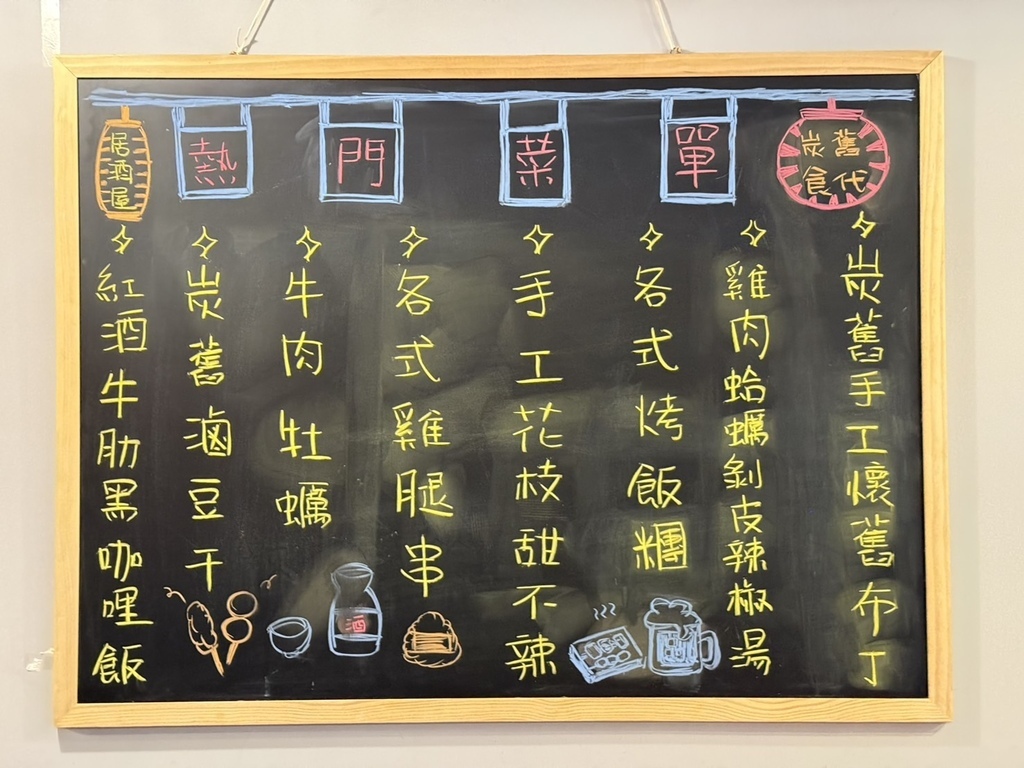 居酒屋
熱門菜單
炭舊食代
炭舊手工懷舊布丁
雞肉蛤蠣剝皮辣椒湯
各式烤飯糰
手工花枝甜不辣
各式雞腿串
牛肉牡蠣
炭舊滷豆干
紅酒牛肋黑咖哩飯
酒